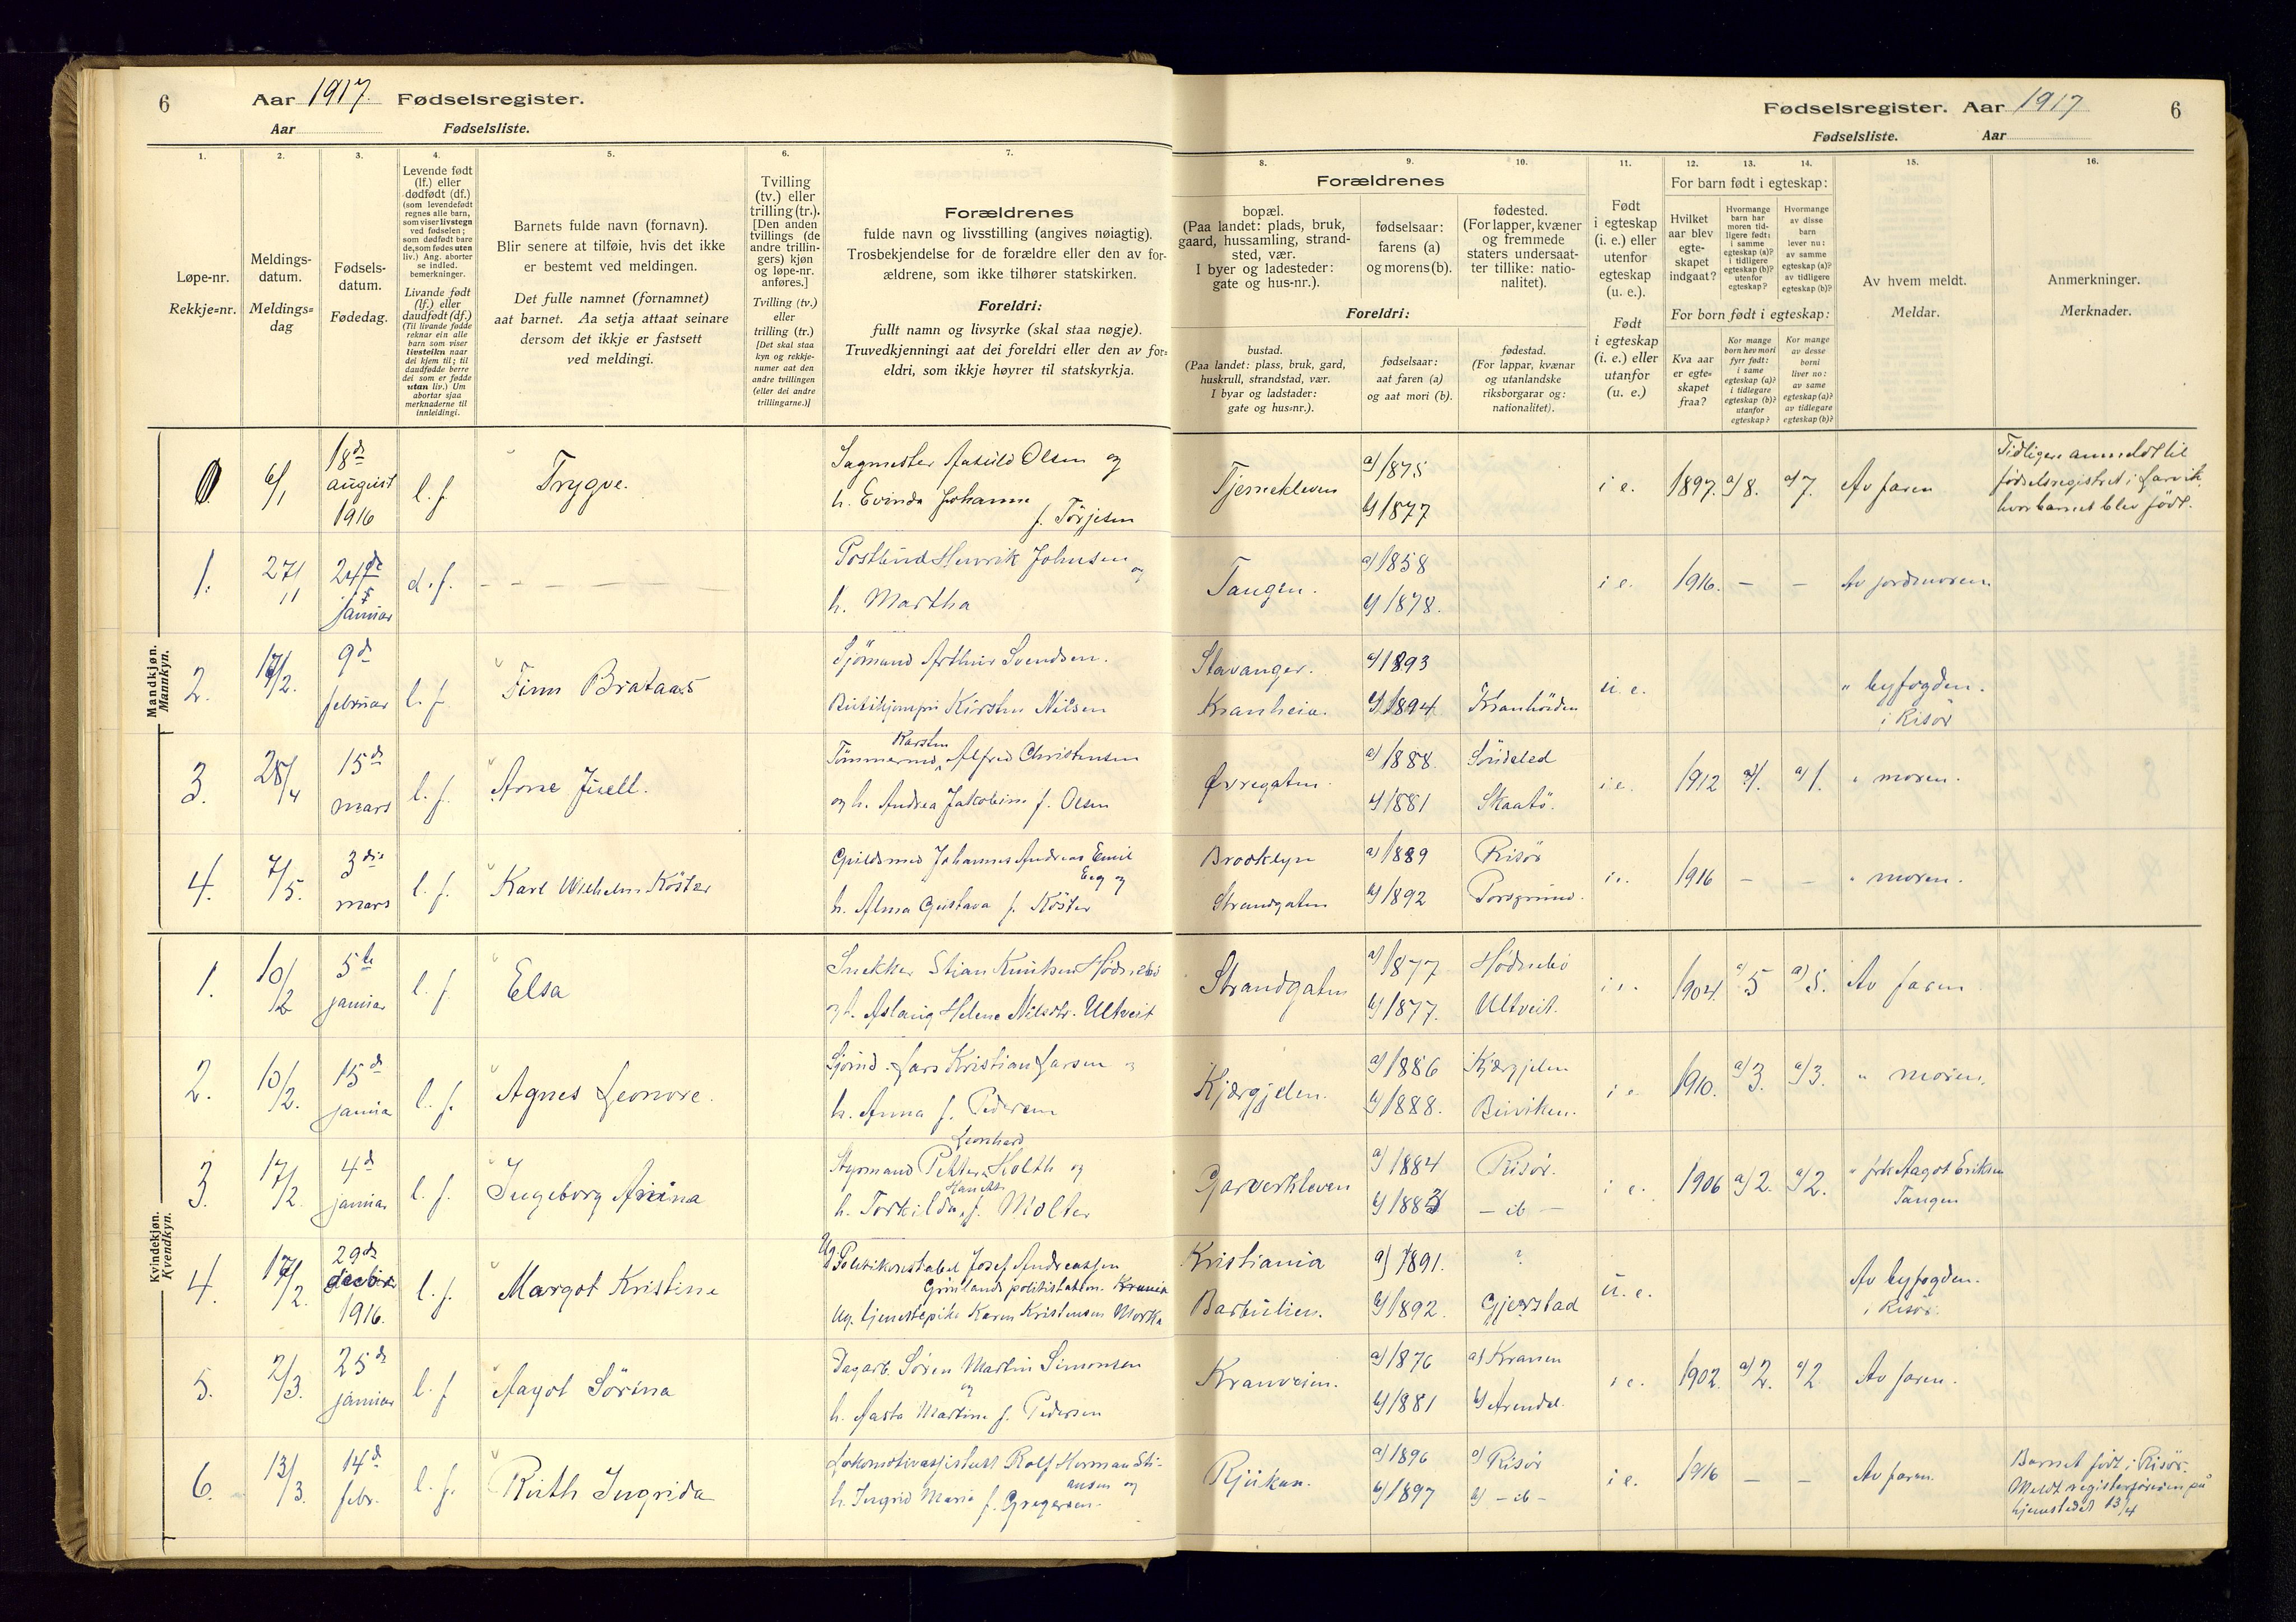 6
Aar 1917. Fødselsregister.
Aar
Fødselsliste.
Fødselsregister. Aar 1917
6
Fødselsliste.
Aar
1.
2.
3.
4.
5.
6.
7.
8.
9.
10.
11.
12.
13.
14.
15.
16.
Løpe-nr.
Rekkje=nr.
Meldings-
datum.
Meldings=
dag
Fødsels-
datum.
Fødedag.
Levende født
(lf.) eller
dødfødt (df.)
(som levendefødt
regnes alle barn,
som viser livstegn
ved fødselen;
som dødfødt bare
de, som fødes uten
liv.) Ang. aborter
se indled.
bemerkninger.
Livande født
(lf.) eller
daudfødt (df.)
(Til livande fødde
reknar ein alle
barn som viser
livsteikn naar
dei kjem til; til
daudfødde berre
dei som er fødde
utan liv.) Um
abortar sjaa
merknaderne til
innleidingi.
Barnets fulde navn (fornavn).
Blir senere at tilføie, hvis det ikke
er bestemt ved meldingen.
Det fulle namnet (fornamnet)
aat barnet. Aa setja attaat seinare
dersom det ikkje er fastsett
ved meldingi.
Tvilling
(tv.) eller
trilling (tr.).
[Den anden
tvillings (de
andre trillin-
gers) kjøn
og løpe-nr.
anføres.]
Tvilling (tv.)
eller
trilling (tr.)
[Det skal staa
kyn og rekkje-
numer aat den
andre tvillingen
(eller dei andre
trillingarne.)]
Forældrenes
fulde navn og livsstilling (angives nøiagtig).
Trosbekjendelse for de forældre eller den av for-
ældrene, som ikke tilhører statskirken.
Foreldri:
fullt namn og livsyrke (skal staa nøgje).
Truvedkjenningi aat dei foreldri eller den av for=
eldri, som ikkje høyrer til statskyrkja.
Forældrenes
bopæl.
(Paa landet: plads, bruk,
gaard, hussamling, strand-
sted, vær.
I byer og ladesteder:
gate og hus-nr.).
fødselsaar:
farens (a)
og morens (b).
fødested.
(For lapper, kvæner
og fremmede
staters undersaat-
ter tillike: natio-
nalitet).
Foreldri:
bustad.
(Paa landet: plass, bruk, gard,
huskrull, strandstad, vær.
I byar og ladstader:
gate og hus=nr.).
fødselsaar:
aat faren (a)
og aat mori (b).
fødestad.
(For lappar, kvænar
og utanlandske
riksborgarar og:
nationalitet).
Født
i egteskap
(i. e.) eller
utenfor
egteskap
(u. e.).
Født
i egteskap
(i. e.) eller
utanfor
(u. e.)
For barn født i egteskap:
Hvilket
aar blev
egte-
skapet
indgaat?
Hvormange
barn har
moren tid-
ligere født:
i samme
egteskap (a)?
i tidligere
egteskap (b)?
utenfor
egteskap?
Hvormange
av disse
barn
lever nu:
av samme
egteskap (a)?
av tidligere
egteskap (b)?
For born født i egteskap:
Kva aar
er egte=
skapet
fraa?
Kor mange
born hev mori
fyrr født:
i same
egteskap (a)?
i tidlegare
egteskap (b)?
utanfor
egteskap?
Kor mange
av desse
borni
liver no:
av same
egteskap (a)?
av tidlegare
egteskap (b)?
Av hvem meldt.
Meldar.
Anmerkninger.
Merknader.
Mandkjøn.
Mannkyn.
6/1
18de
august
1916
l. f.
Trygve.
Olsen og
h. Evinda Johanne
f. Törjesen
Tjernekleven
a) 1875
b) 1877
i e.
1897. a) 8. a) 7. Av faren
Tidligere anmeldt til
fødselsregistret i Larvik,
hvor barnet blev født.
1.
27/1
24de
januar
d. f.
Postbud Henrik Johnsen og
h. Martha
Tangen.
a) 1858
b) 1878.
i e.
1916. — — Av jordmoren
2.
17/2.
9de
februar
l. f.
Finn Brataas
Sjömand Arthur Svendsen.
Kirsten Nilsen
Stavanger.
Kranheia.
a) 1893
b) 1894.
u. e.
" byfogden.
i Risör
3.
28/4
15de
mars
l. f.
Arne Juell.
Karsten
Tömmermd. Alfred Christensen
og h. Andrea Jakobine f. Olsen
Øvregaten.
a) 1888.
b) 1881
Söndeled
Skaatö.
i e.
1912 a) 1. a) 1. " moren.
4.
7/5.
3die
mars
l. f.
Karl Wilhelm Köster
Guldsmed Johannes Andreas Emil
Eeg og
h. Alma Gustava f. Köster
Brooklyn
Strandgaten
a) 1889
b) 1892
Risör
Porsgrund.
i e.
1916 — — " moren.
Kvindekjøn.
Kvendkyn.
1.
10/2
5te
januar
l. f.
Elsa
Snekker Stian Knutsen Hödnebö
og h. Aslaug Helene Nilsdtr. Ultveit
Strandgaten
a) 1877
b) 1877.
Hödnebö
Ultveit.
i e.
1904. a) 5 a) 5. Av faren
2.
10/2.
15de
janua
l. f.
Agnes Leonore.
Sjömd. Lars Kristian Larsen og
h. Anna f. Pedersen
Kjærgjelen.
a) 1886
b) 1888.
Kjærgjelen
Buviken.
i e.
1910. a) 3. a) 3. " moren.
3.
17/2.
4de
januar
l. f.
Ingeborg Anina
Leonhard
Styrmand Petter Holth og
h. Torkilda f. Molter
Garverkleven
a) 1884
b) 1883
Risör.
— ib —
i e.
1906 a) 2. a) 2. " frk Aagot Eriksen
Tangen
4.
17/2.
29de
decbr.
1916.
l. f.
Margot Kristine
Ug. Politikonstabel Josef Andreassen
Grønlands politistation. Krania
ug. tjenestepike Karen Kristensen Morka
Kristiania
Barbulien.
a) 1891.
b) 1892.
?
Gjerstad
u. e.
Av byfogden.
i Risör.
5.
2/3.
25de
januar
l. f
Aagot Sörina
Dagarb. Sören Martin Simonsen
og
h. Aasta Martine f. Pedersen
Kranveien.
a) 1876
b) 1881
a) Kranen
b) Arendal.
i e.
1902. a) 2. a) 2 Av faren.
6.
13/3.
14de
febr.
l. f.
Ruth Ingrida
Lokomotivassistent Rolf Herman Sti-
ansen og
h. Ingrid Maria f. Gregersen.
Rjukan.
a) 1896
b) 1897
a) Risör
b) — ib —
i e.
1916 — — Av faren.
Barnet födt i Risör.
Meldt registerföreren på
hjemstedet 13/4